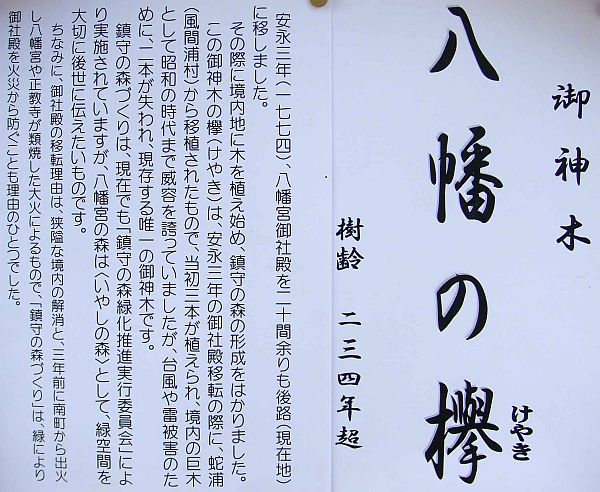 御神木
八幡の欅
けやき
樹齢 二三四年超
安永三年(一七七四)、八幡宮御社殿を二十間余りも後路(現在地)
に移しました。
その際に境内地に木を植え始め、鎮守の森の形成をはかりました。
この御神木の欅(けやき)は、安永三年の御社殿移転の際に、蛇浦
(風間浦村)から移植されたもので、当初三本が植えられ、境内の巨木
として昭和の時代まで威容を誇っていましたが、台風や雷被害のた
めに、二本が失われ、現存する唯一の御神木です。
鎮守の森づくりは、現在でも「鎮守の森緑化推進実行委員会」によ
り実施されていますが、八幡宮の森は〈いやしの森〉として、緑空間を
大切に後世に伝えたいものです。
ちなみに、御社殿の移転理由は、狭隘な境内の解消と、三年前に南町から出火
し八幡宮や正教寺が類焼した大火によるもので、「鎮守の森づくり」は、緑により
御社殿を火災から防ぐことも理由のひとつでした。